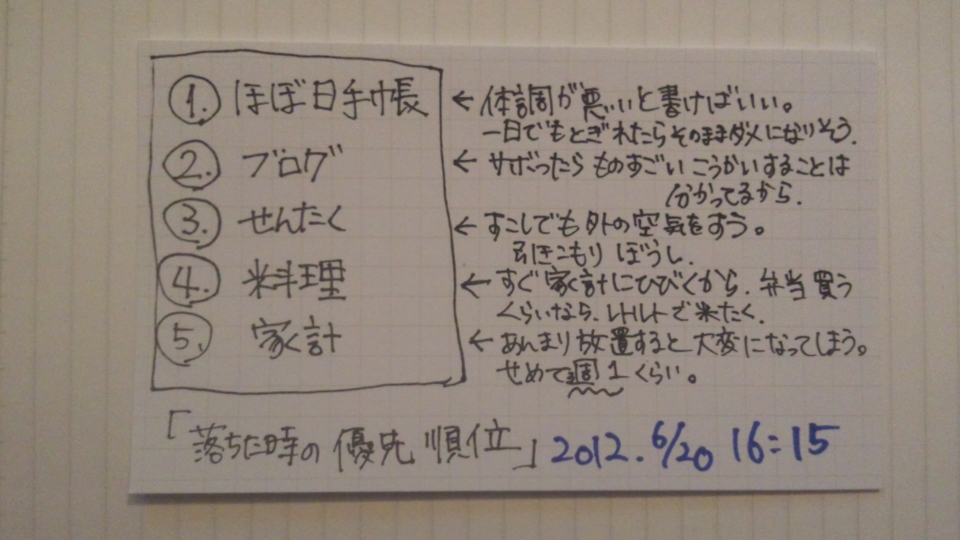 1. ほぼ日手帳 ← 体調が悪いと書けばいい。
一日でもとぎれたらそのままダメになりそう.
2. ブログ ← サボったらものすごいこうかいすることは
分かってるから.
3. せんたく ← すこしでも外の空気をすう。
引きこもりぼうし.
4. 料理 ← すぐ家計にひびくから. 弁当買う
くらいなら、レトルトで米たく.
5. 家計 ← あんまり放置すると大変になってしまう。
せめて週1くらい。
「落ちた時の優先順位」 2012. 6/20 16:15